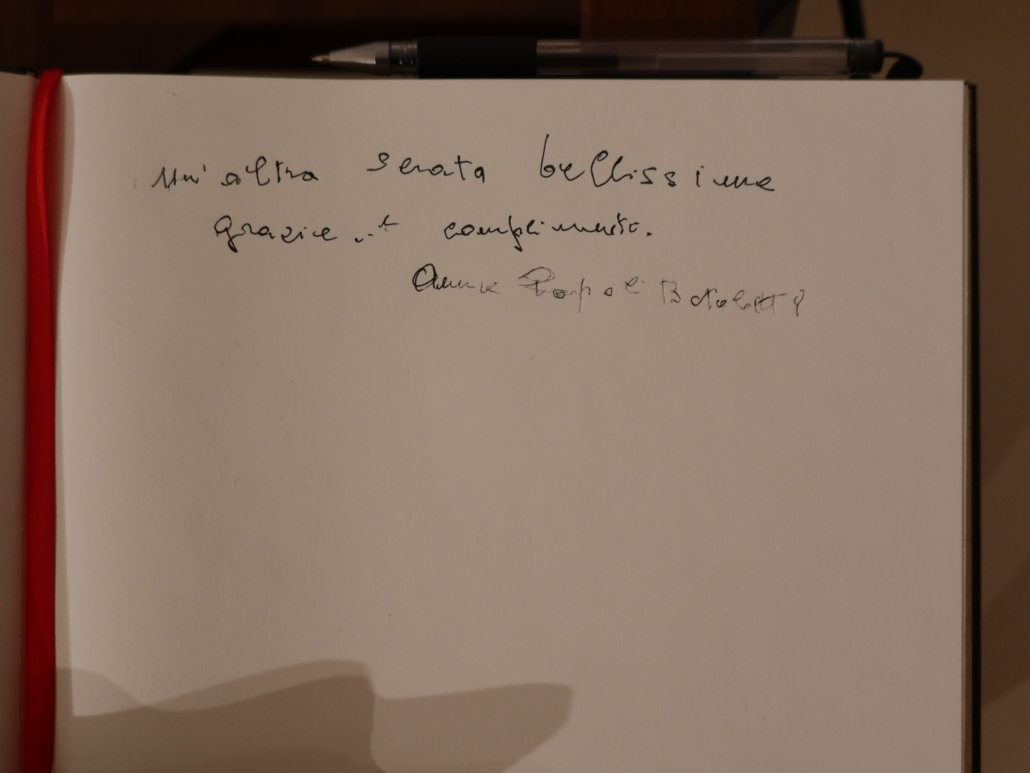 Un'altra serata bellissima
grazie complimenti.
Anna